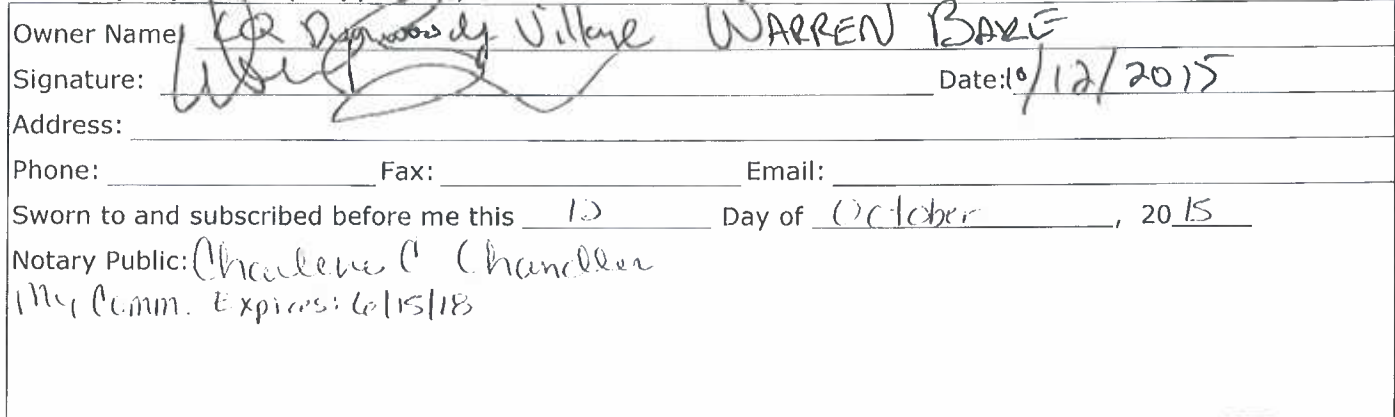 Owner Name Dunwoody Village WARREN BAKE
Signature:
Date: 10/12/2015
Address:
Phone: Fax: Email:
Sworn to and subscribed before me this 12 Day of October, 20 15
Notary Public: Charlene C Chandler
My Comm. Expires: 6/15/18